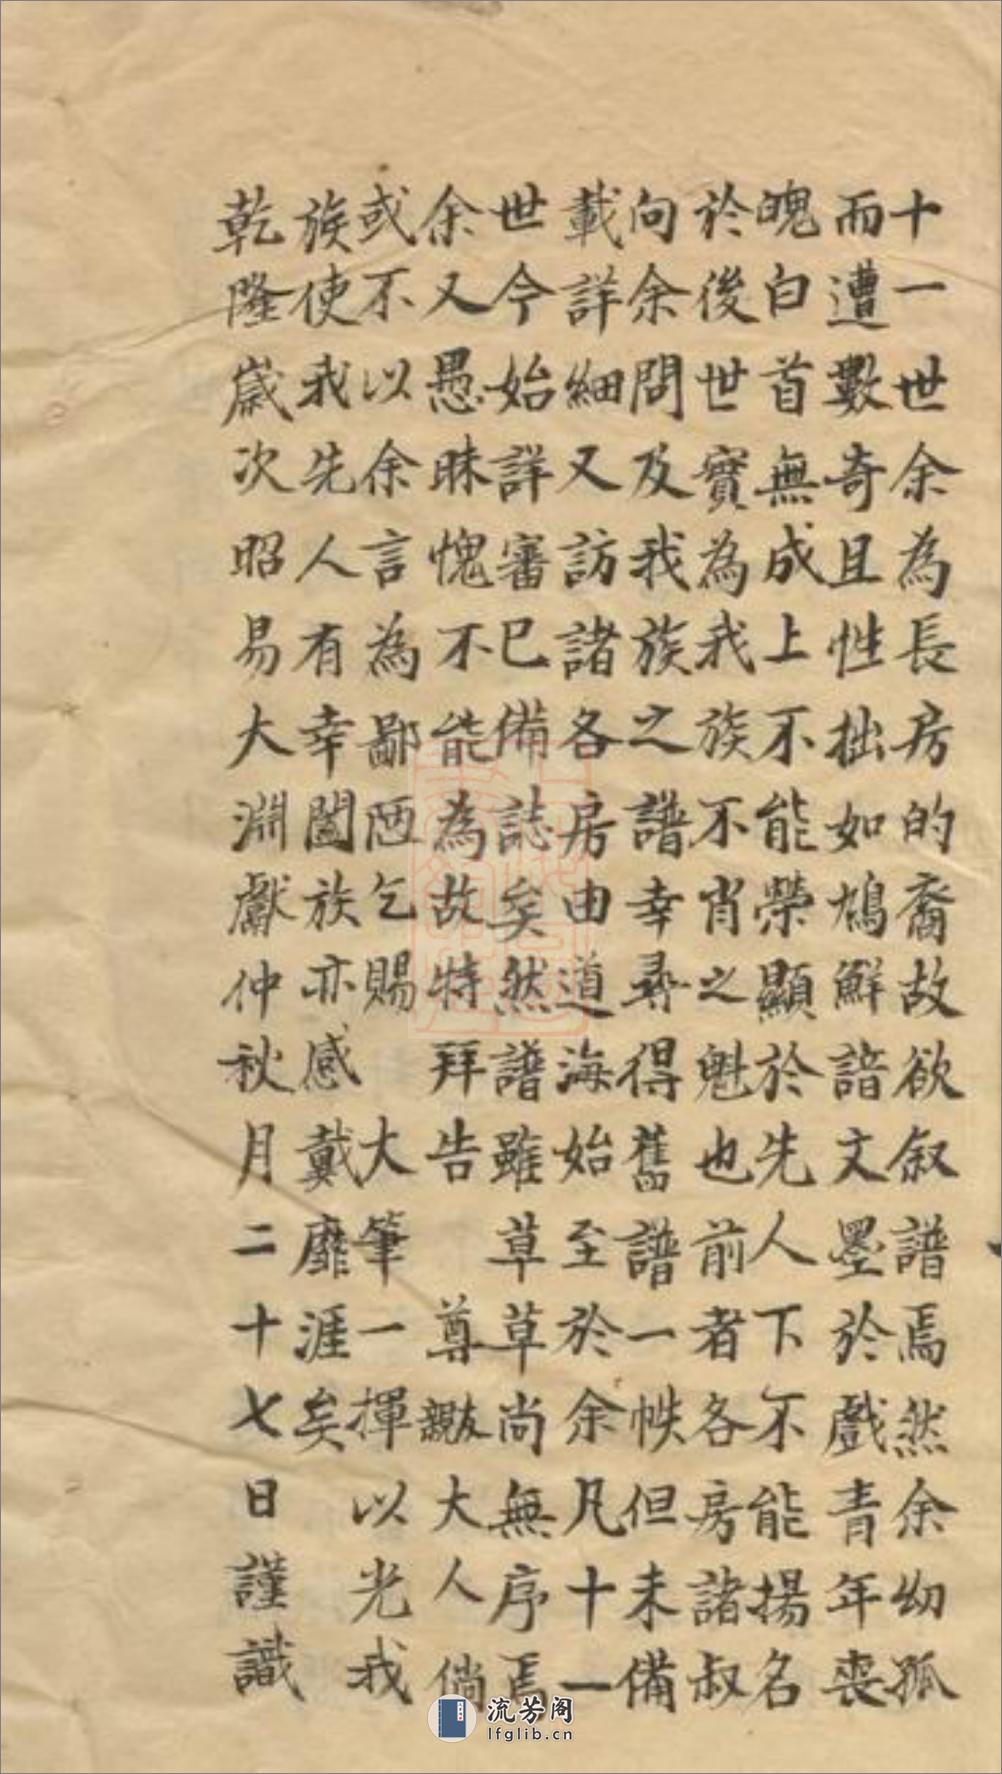 十一世余為長房的裔故欲叙譜焉然余幼孤
而遭數奇且性拙如鳩鮮諳文墨於戲青年喪
魄白首無成上不能榮顯於先人下不能揚名
於後世實為我族不肖之魁也前者各房諸叔
向余問及我族之譜幸尋得舊譜一帙但未備
載詳細又訪諸各房由道海始至於余凡十一
世今始詳審已備誌矣然譜雖草草尚無序焉
余又愚昧愧不能為故特拜告尊親友大人倘
或不以余言為鄙陋乞賜大筆一揮以光我
族使我先人有幸闔族亦感戴靡涯矣
乾隆歲次昭易大淵獻仲秋月二十七日謹識
流芳阁
lfglib.cn